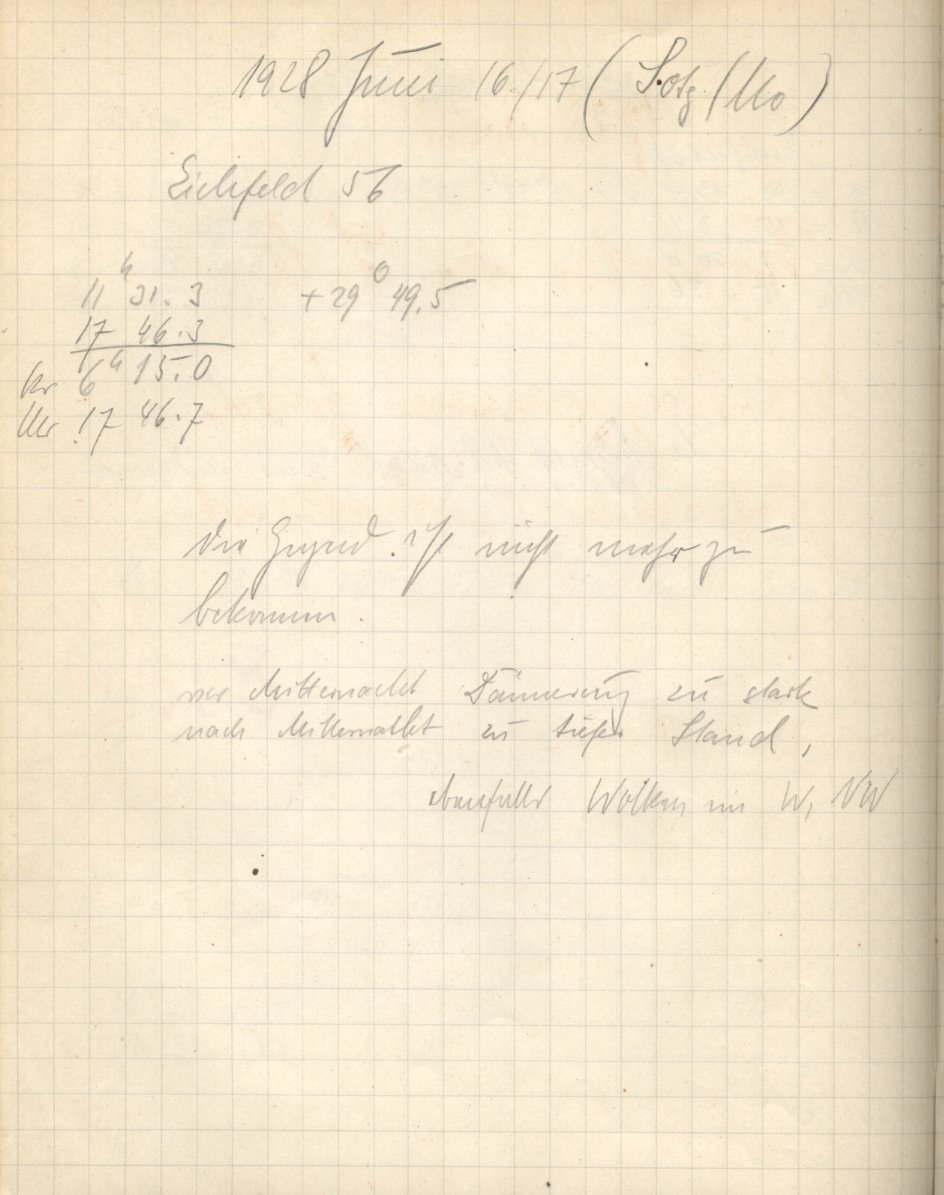 1928 Juni 16./17 ( Sotg/Mo)
Eichfeld 56
11h 31.3 +29° 49.5
17 46.3
6h 15.0
Uhr 17 46.7
Die Gegend ist nicht mehr zu
bekommen.
vor Mitternacht Dämmerung zu stark
nach Mitternacht zu tiefer Stand,
ebenfalls Wolken im W, NW